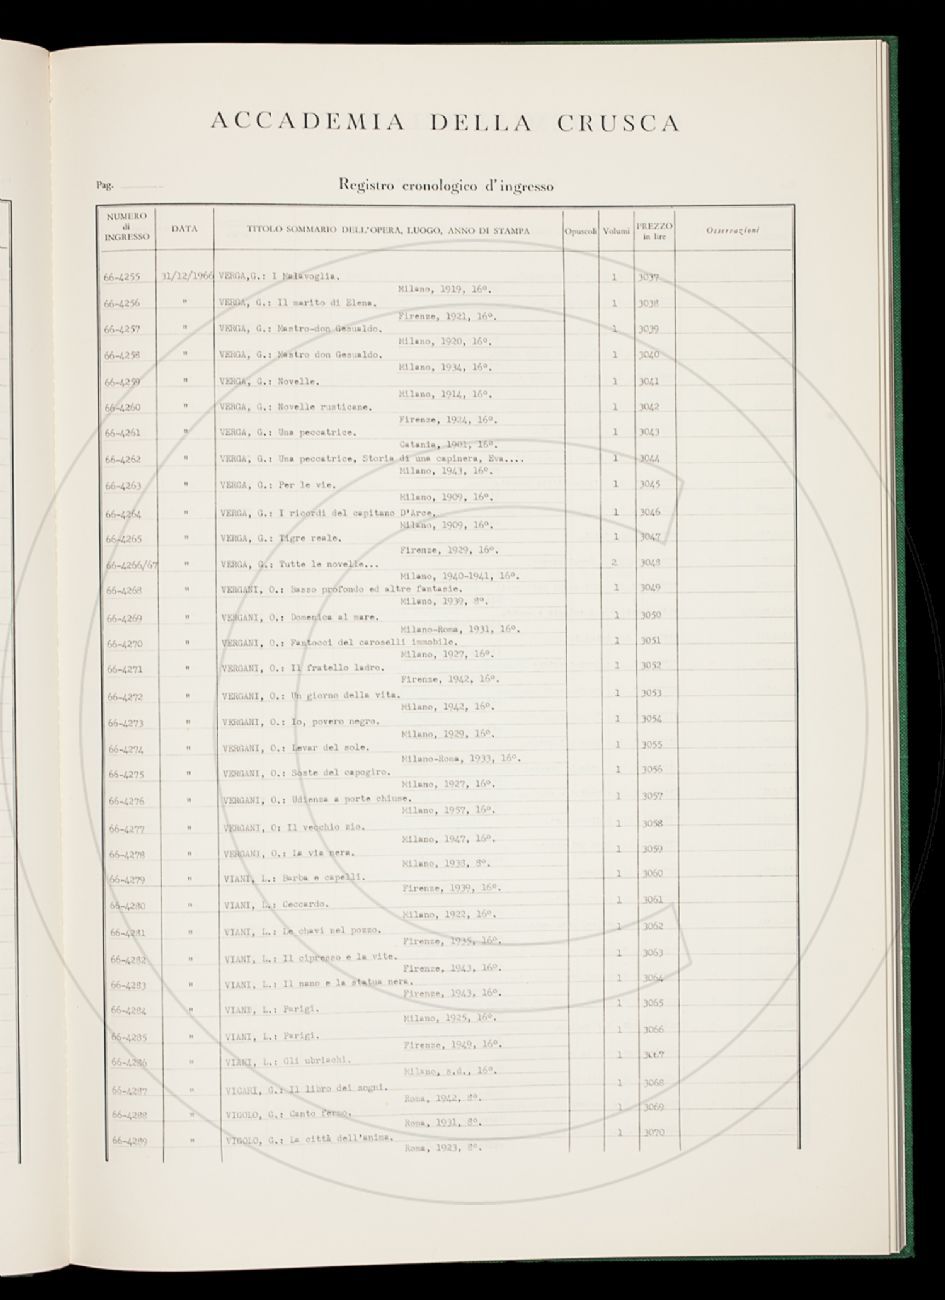 ACCADEMIA DELLA CRUSCA
Pag.
Registro cronologico d'ingresso
NUMERO di INGRESSO DATA TITOLO SOMMARIO DELL'OPERA, LUOGO, ANNO DI STAMPA Opuscoli Volumi PREZZO in lire Osservazioni
66-4255 31/12/1966 VERGA,G.: I Malavoglia. 1 3037
Milano, 1919, 16º.
66-4256 " VERGA, G.: Il marito di Elena. 1 3038
Firenze, 1921, 16º.
66-4257 " VERGA, G.: Mastro-don Gesualdo. 1 3039
Milano, 1920, 16º.
66-4258 " VERGA, G.: Mastro don Gesualdo. 1 3040
Milano, 1934, 16º.
66-4259 " VERGA, G.: Novelle. 1 3041
Milano, 1914, 16º.
66-4260 " VERGA, G.: Novelle rusticane. 1 3042
Firenze, 1924, 16º.
66-4261 " VERGA, G.: Una peccatrice. 1 3043
Catania, 1901, 16º.
66-4262 " VERGA, G.: Una peccatrice, Storia di una capinera, Eva.... 1 3044
Milano, 1943, 16º.
66-4263 " VERGA, G.: Per le vie. 1 3045
Milano, 1909, 16º.
66-4264 " VERGA, G.: I ricordi del capitano D'Arce. 1 3046
Milano, 1909, 16º.
66-4265 " VERGA, G.: Tigre reale. 1 3047
Firenze, 1929, 16º.
66-4266/67 " VERGA, G.: Tutte le novelle... 2 3048
Milano, 1940-1941, 16º.
66-4268 " VERGANI, O.: Basso profondo ed altre fantasie. 1 3049
Milano, 1939, 8º.
66-4269 " VERGANI, O.: Domenica al mare. 1 3050
Milano-Roma, 1931, 16º.
66-4270 " VERGANI, O.: Fantocci del caroselli immobile. 1 3051
Milano, 1927, 16º.
66-4271 " VERGANI, O.: Il fratello ladro. 1 3052
Firenze, 1942, 16º.
66-4272 " VERGANI, O.: Un giorno della vita. 1 3053
Milano, 1942, 16º.
66-4273 " VERGANI, O.: Io, povero negro. 1 3054
Milano, 1929, 16º.
66-4274 " VERGANI, O.: Levar del sole. 1 3055
Milano-Roma, 1933, 16º.
66-4275 " VERGANI, O.: Soste del capogiro. 1 3056
Milano, 1927, 16º.
66-4276 " VERGANI, O.: Udienza a porte chiuse. 1 3057
Milano, 1957, 16º.
66-4277 " VERGANI, O: Il vecchio zio. 1 3058
Milano, 1947, 16º.
66-4278 " VERGANI, O.: La via nera. 1 3059
Milano, 1938, 8º.
66-4279 " VIANI, L.: Barba e capelli. 1 3060
Firenze, 1939, 16º.
66-4280 " VIANI, L.: Ceccardo. 1 3061
Milano, 1922, 16º.
66-4281 " VIANI, L.: Le chavi nel pozzo. 1 3062
Firenze, 1935, 16º.
66-4282 " VIANI, L.: Il cipresso e la vite. 1 3063
Firenze, 1943, 16º.
66-4283 " VIANI, L.: Il nano e la statua nera. 1 3064
Firenze, 1943, 16º.
66-4284 " VIANI, L.: Parigi. 1 3065
Milano, 1925, 16º.
66-4285 " VIANI, L.: Parigi. 1 3066
Firenze, 1940, 16º.
66-4286 " VIANI, L.: Gli ubriachi. 1 3067
Milano, s.d., 16º.
66-4287 " VICARI, G.: Il libro dei sogni. 1 3068
Roma, 1942, 8º.
66-4288 " VIGOLO, G.: Canto fermo. 1 3069
Roma, 1931, 8º.
66-4289 " VIGOLO, G.: La città dell'anima. 1 3070
Roma, 1923, 8º.